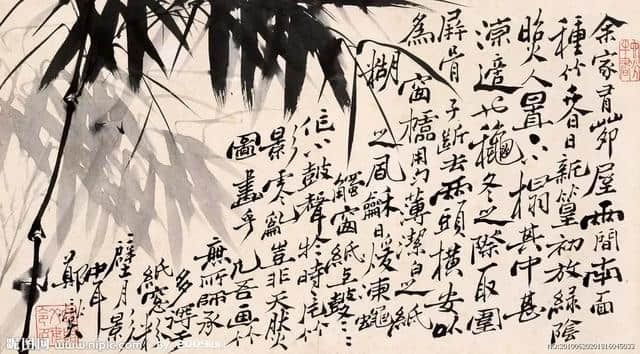 余家有茆屋兩間南面
種竹夏日新篁初放綠陰
照人置一小榻其中甚
涼適也龝冬之際取圍
屏骨子斷去兩頭橫安以
為窗欞用勻薄潔白之紙
糊之風龢日煖凍蠅
觸窗紙上鼕〻
作小鼓聲於時一片竹
影零亂豈非天然
圖畫乎凡吾画竹
無所師承
多得於
紙窗粉
壁月景
中耳
鄭燮
昵图网 www.nipic.com